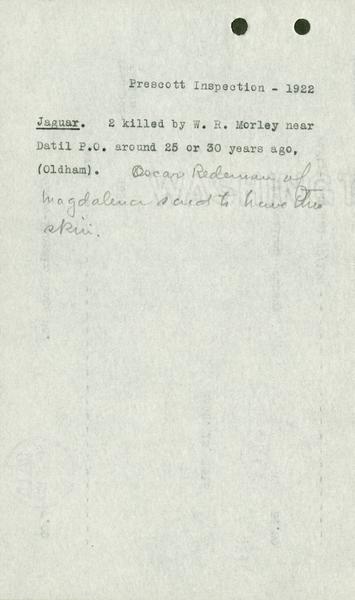 Prescott Inspection - 1922
Jaguar. 2 killed by W. R. Morley near
Datil P.O. around 25 or 30 years ago,
(Oldham). Oscar Redeman of
Magdalena said to have the
skin.